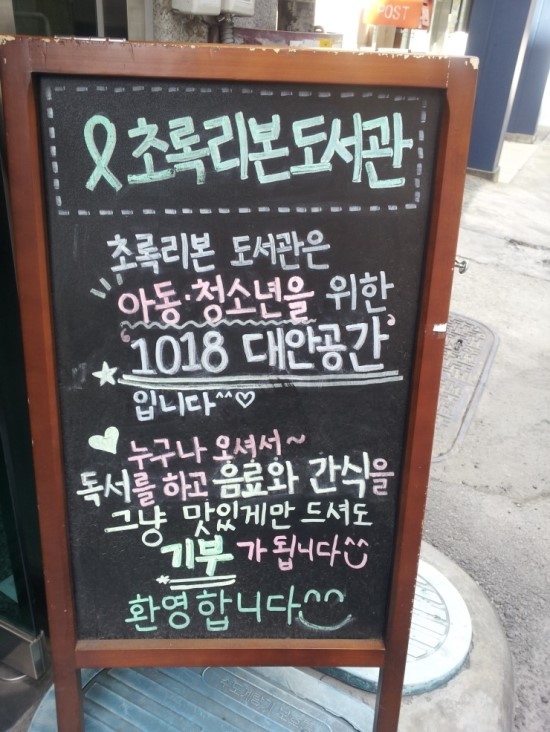 POST
초록리본도서관
초록리본 도서관은
아동·청소년을 위한
'1018 대안공간'
입니다^^♡
누구나 오셔서~
독서를 하고 음료와 간식을
그냥 맛있게만 드셔도
기부가 됩니다
환영합니다